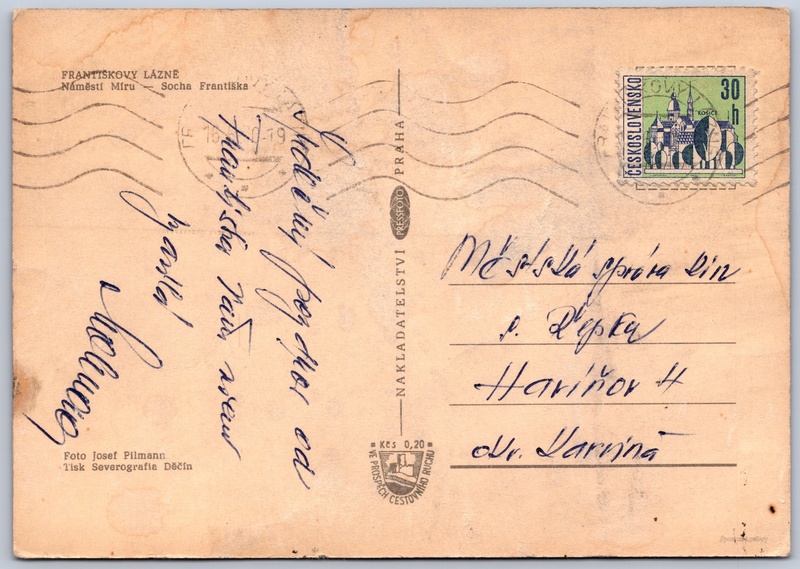 FRANTIŠKOVY LÁZNĚ
Náměstí Míru — Socha Františka
Srdečný pozdrav od
Františka Vám
zasílá
Foto Josef Pilmann
Tisk Severografia Děčín
NAKLADATELSTVÍ PRESSFOTO PRAHA
Kčs 0,20
VE PROSPĚCH CESTOVNÍHO RUCHU
ČESKOSLOVENSKO
30 h
KOŠICE
Městská správa kin
s. Řepka
Havířov 4
okr. Karviná